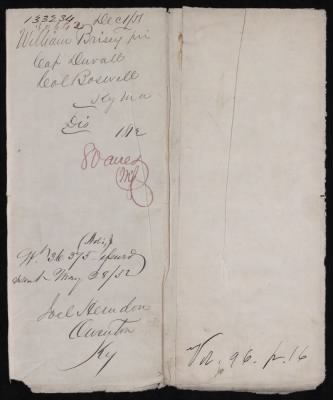 133234 Dec 1/51
William Brisey pri
Cap Duvall
Col Boswell
Ky ma
Dis 1812
80 acres
Wt 36375 Issued
sent May 28/52
Joel Herndon
Owenton
Ky
Vol. 96. p. 16